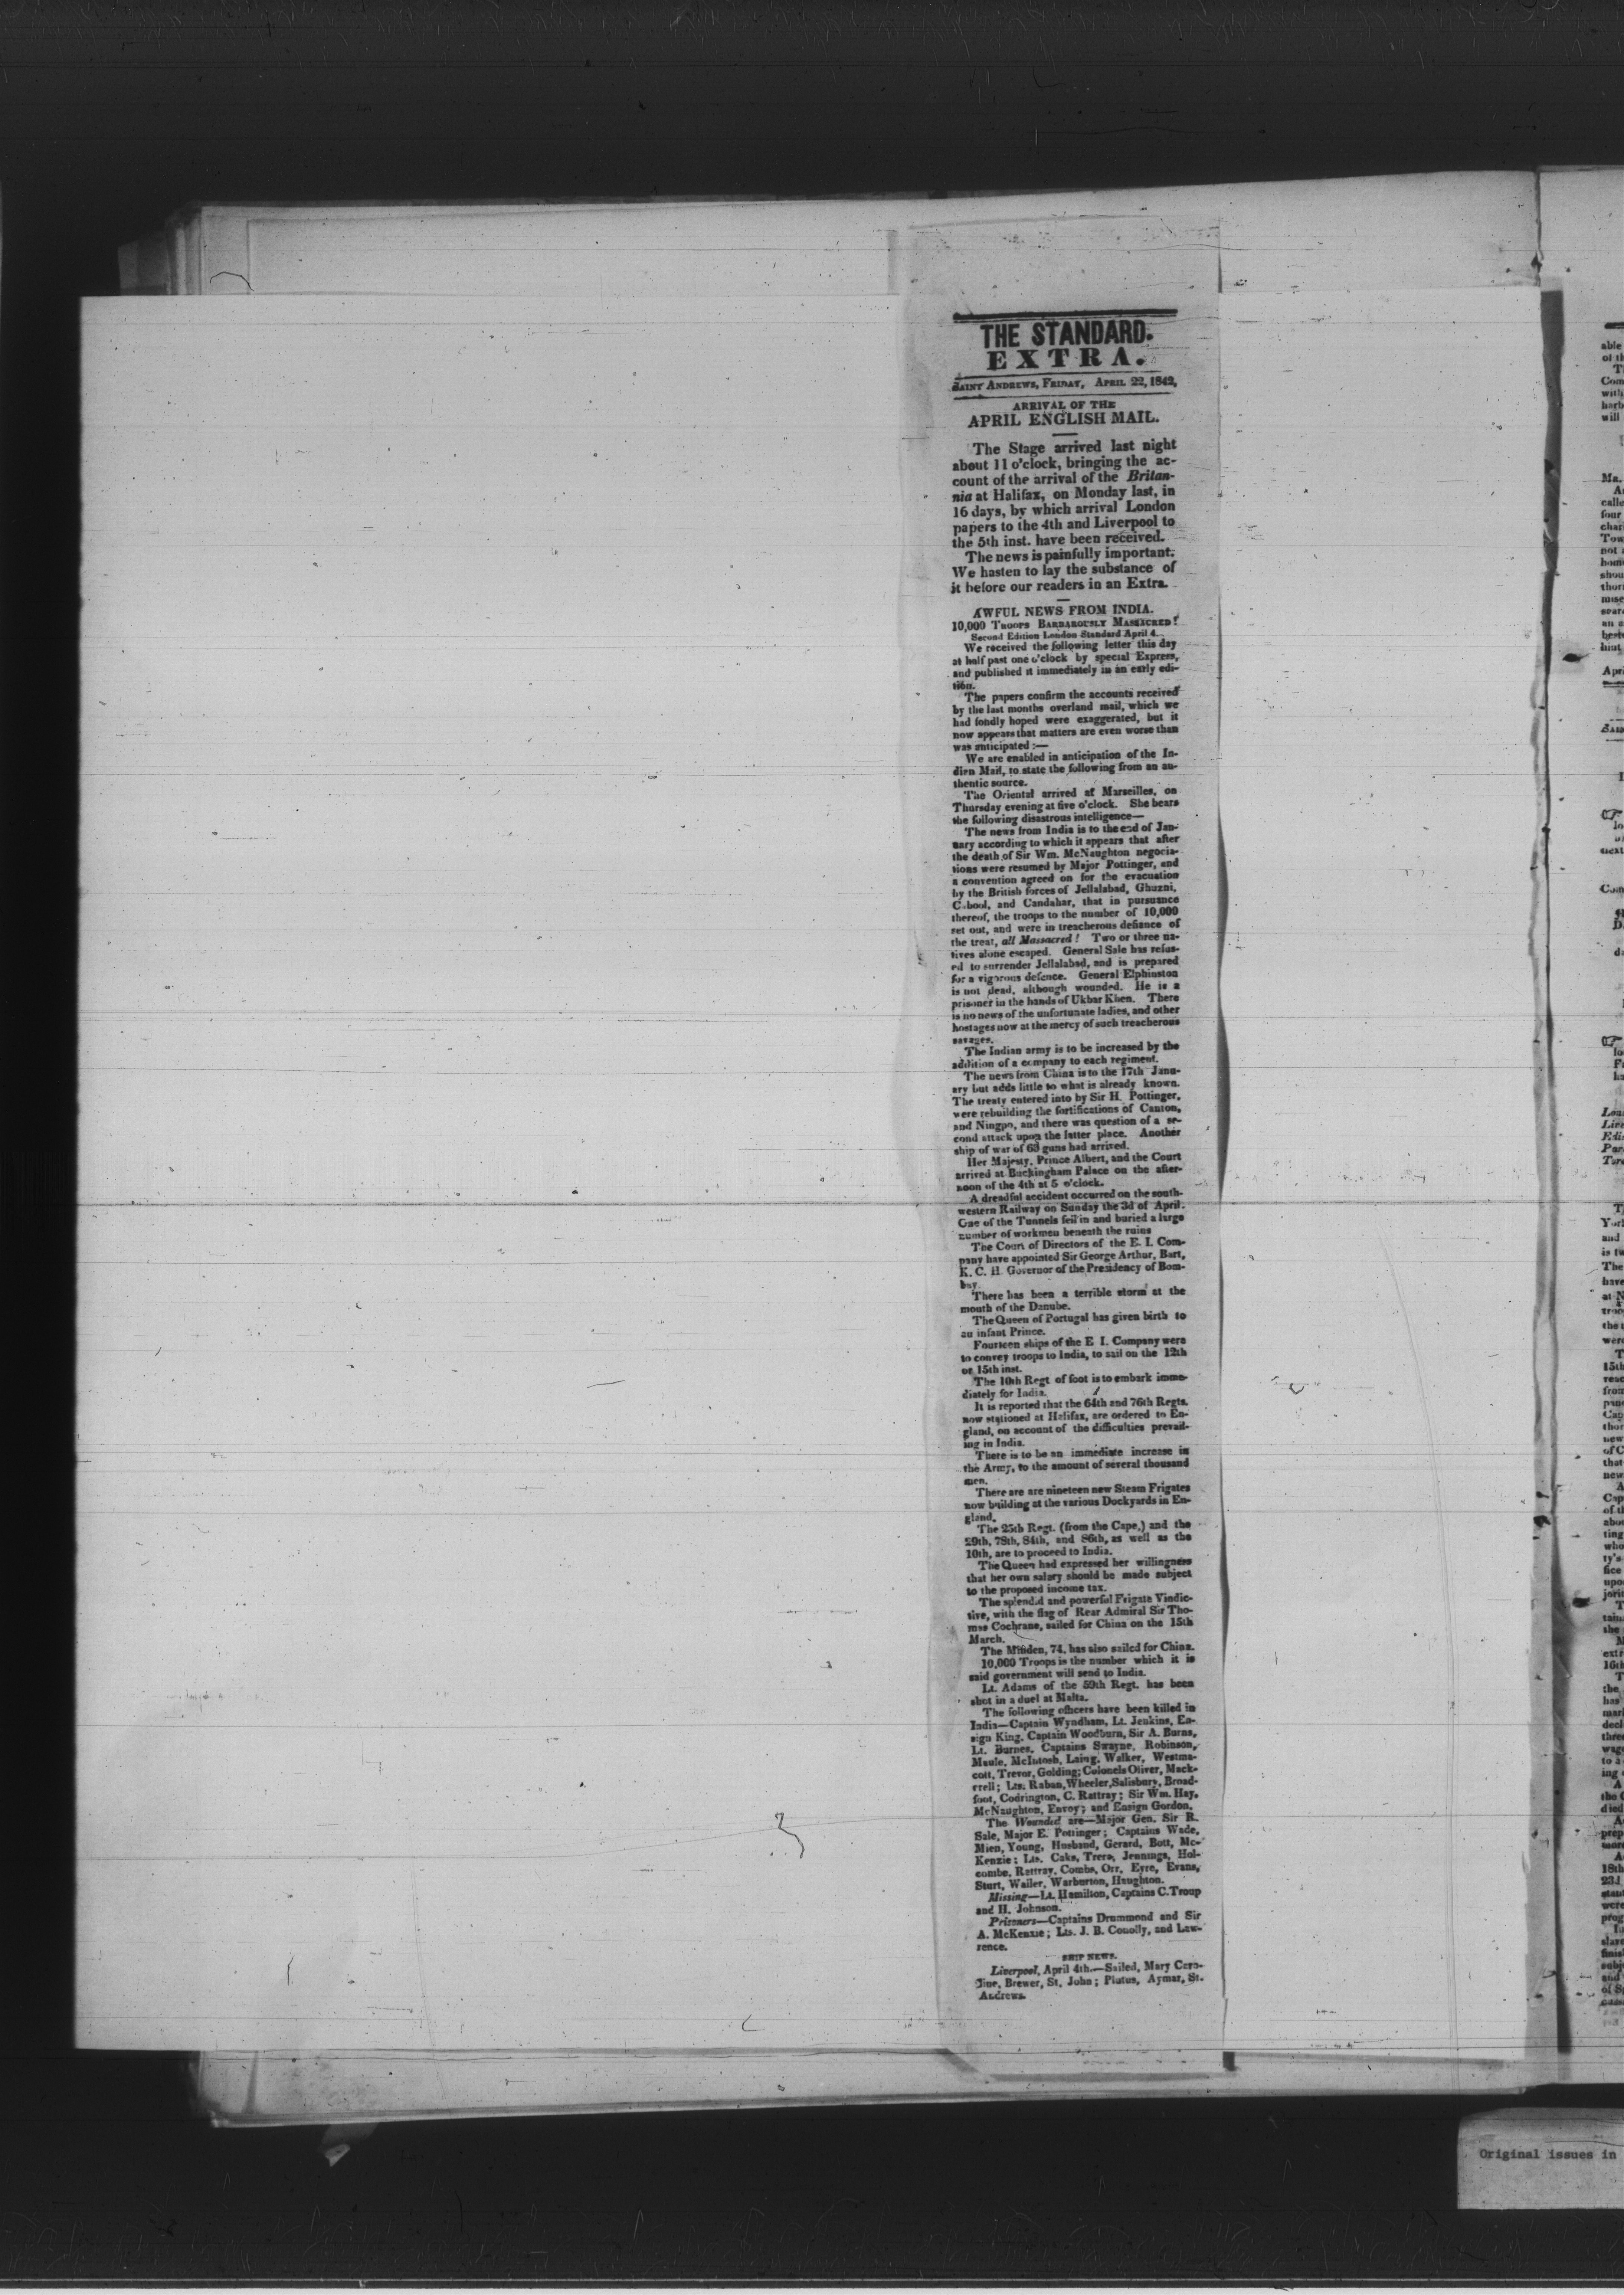 THE STANDARD.
EXTRA.
SAINT ANDREWS, FRIDAY, APRIL 22, 1842,
ARRIVAL OF THE
APRIL ENGLISH MAIL.
The Stage arrived last night
about 11 o'clock, bringing the ac-
count of the arrival of the Britan-
nia at Halifax, on Monday last, in
16 days, by which arrival London
papers to the 4th and Liverpool to
the 5th inst. have been received.
The news is painfully important.
We hasten to lay the substance of
it before our readers in an Extra.
AWFUL NEWS FROM INDIA.
10,000 TROOPS BARBAROUSLY MASSACRED!
Second Edition London Standard April 4.
We received the following letter this day
at half past one o'clock by special Express,
and published it immediately in an early edi-
tion.
The papers confirm the accounts received
by the last months overland mail, which we
had fondly hoped were exaggerated, but it
now appears that matters are even worse than
was anticipated :—
We are enabled in anticipation of the In-
dien Mail, to state the following from an au-
thentic source.
The Oriental arrived at Marseilles, on
Thursday evening at five o'clock. She bears
the following disastrous intelligence—
The news from India is to the end of Jan-
uary according to which it appears that after
the death of Sir Wm. McNaughton negocia-
tions were resumed by Major Pottinger, and
a convention agreed on for the evacuation
by the British forces of Jellalabad, Ghuzni,
Cabool, and Candahar, that in pursuance
thereof, the troops to the number of 10,000
set out, and were in treacherous defiance of
the treat, all Massacred! Two or three na-
tives alone escaped. General Sale has refus-
ed to surrender Jellalabad, and is prepared
for a vigorous defence. General Elphinston
is not dead, although wounded. He is a
prisoner in the hands of Ukbar Khen. There
is no news of the unfortunate ladies, and other
hostages now at the mercy of such treacherous
savages.
The Indian army is to be increased by the
addition of a company to each regiment.
The news from China is to the 17th Janu-
ary but adds little to what is already known.
The treaty entered into by Sir H. Pottinger,
were rebuilding the fortifications of Canton,
and Ningpo, and there was question of a se-
cond attack upon the latter place. Another
ship of war of 60 guns had arrived.
Her Majesty, Prince Albert, and the Court
arrived at Buckingham Palace on the after-
noon of the 4th at 5 o'clock.
A dreadful accident occurred on the south-
western Railway on Sunday the 3d of April.
One of the Tunnels fell in and buried a large
number of workmen beneath the ruins
The Court of Directors of the E. I. Com-
pany have appointed Sir George Arthur, Bart,
K. C. H. Governor of the Presidency of Bom-
bay.
There has been a terrible storm at the
mouth of the Danube.
The Queen of Portugal has given birth to
an infant Prince.
Fourteen ships of the E I. Company were
to convey troops to India, to sail on the 12th
or 15th inst.
The 10th Regt of foot is to embark imme-
diately for India.
It is reported that the 64th and 76th Regts.
now stationed at Halifax, are ordered to En-
gland, on account of the difficulties prevail-
ing in India.
There is to be an immediate increase in
the Army, to the amount of several thousand
men.
There are are nineteen new Steam Frigates
now building at the various Dockyards in En-
gland.
The 25th Regt. (from the Cape,) and the
29th, 78th, 84th, and 86th, as well as the
10th, are to proceed to India.
The Queen had expressed her willingness
that her own salary should be made subject
to the proposed income tax.
The splendid and powerful Frigate Vindic-
tive, with the flag of Rear Admiral Sir Tho-
mas Cochrane, sailed for China on the 15th
March.
The Minden, 74, has also sailed for China.
10,000 Troops is the number which it is
said government will send to India.
Lt. Adams of the 59th Regt. has been
shot in a duel at Malta.
The following officers have been killed in
India—Captain Wyndham, Lt. Jenkins, En-
sign King, Captain Woodburn, Sir A. Burns,
Lt. Burnes, Captains Swayne, Robinson,
Maule, McIntosh, Laing, Walker, Westma-
cott, Trevor, Golding; Colonels Oliver, Mack-
rrell; Lts. Raban, Wheeler, Salisbury, Broad-
foot, Codrington, C. Rattray; Sir Wm. Hay,
McNaughton, Envoy; and Ensign Gordon.
The Wounded are—Major Gen. Sir R.
Sale, Major E. Pottinger; Captains Wade,
Mien, Young, Husband, Gerard, Bott, Mc-
Kenzie; Lts. Caks, Trero, Jennings, Hol-
combe, Rattray, Combs, Orr, Eyre, Evans,
Sturt, Waller, Warburton, Haughton.
Missing—Lt. Hamilton, Captains C. Troup
and H. Johnson.
Prisoners—Captains Drummond and Sir
A. McKenzie; Lts. J. B. Conolly, and Law-
rence.
SHIP NEWS.
Liverpool, April 4th.—Sailed, Mary Caro-
line, Brewer, St. John; Plutus, Aymar, St.
Andrews.
Original issues in